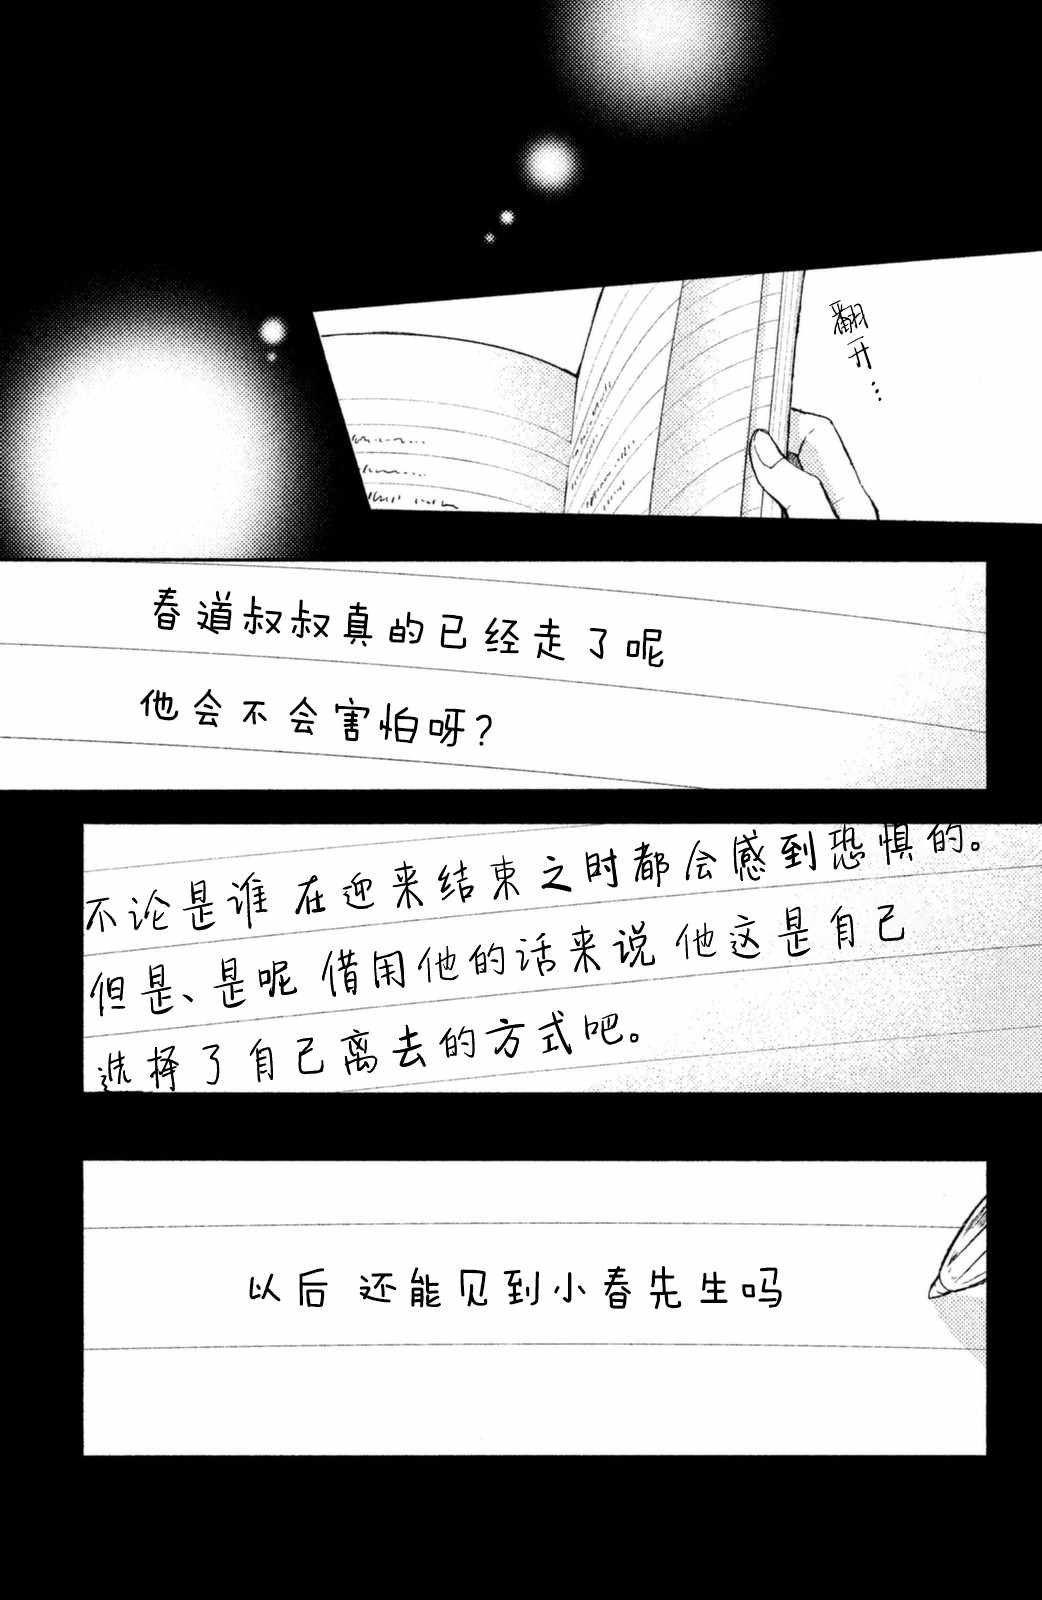 翻开…
春道叔叔真的已经走了呢
他会不会害怕呀？
不论是谁 在迎来结束之时都会感到恐惧的。
但是、是呢 借用他的话来说 他这是自己
选择了自己离去的方式吧。
以后 还能见到小春先生吗